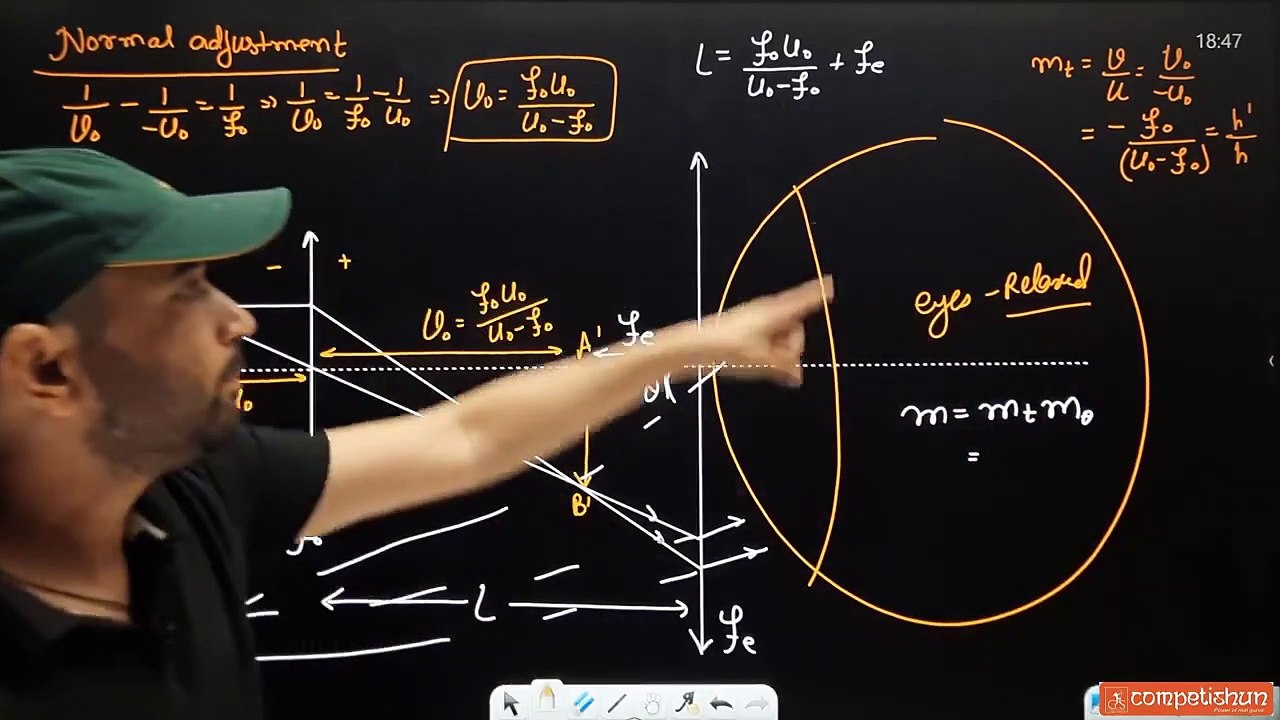 Normal adjustment
1/v₀ - 1/-u₀ = 1/f₀ ⇒ 1/v₀ = 1/f₀ - 1/u₀ ⇒ v₀ = f₀u₀/(u₀-f₀)
L = f₀u₀/(u₀-f₀) + fe
18:47
mt = v/u = v₀/-u₀
= -f₀/(u₀-f₀) = h'/h
- +
v₀ = f₀u₀/(u₀-f₀)
A' fe
eyes - Relaxed
m = mt mθ
=
B'
L
fe
competishun